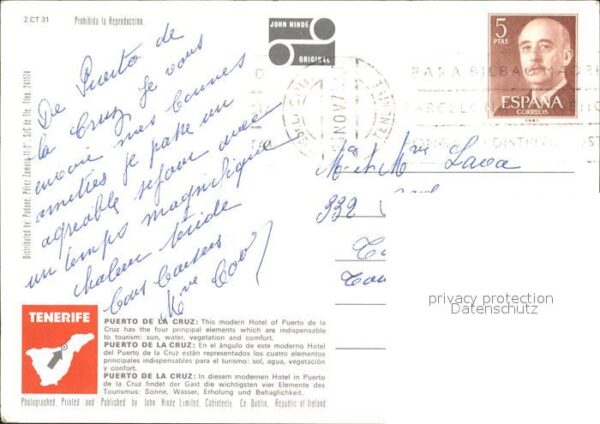 2 CT 31
Prohibida la Reproduccion.
JOHN HINDE
ORIGINAL
5
PTAS
ESPAÑA
CORREOS
PARA BILBAO MADRID
De Puerto de
la Cruz je vous
envoie mes bonnes
amitiés je passe un
agréable séjour avec
un temps magnifique
chaleur
Bons baisers
Mme
M. et Mme
332
privacy protection
Datenschutz
TENERIFE
PUERTO DE LA CRUZ: This modern Hotel of Puerto de la
Cruz has the four principal elements which are indispensable
to tourism: sun, water, vegetation and comfort.
PUERTO DE LA CRUZ: En el ángulo de este moderno Hotel
del Puerto de la Cruz están representados los cuatro elementos
principales indispensables para el turismo: sol, agua, vegetación
y confort.
PUERTO DE LA CRUZ: In diesem modernen Hotel in Puerto
de la Cruz findet der Gast die wichtigsten vier Elemente des
Tourismus: Sonne, Wasser, Erholung und Behaglichkeit.
Photographed, Printed and Published by John Hinde Limited, Cabinteely, Co Dublin, Republic of Ireland